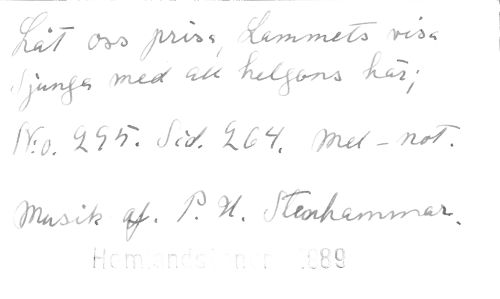 Låt oss prisa, Lammets visa
Sjunga med all helgons här;
N:o. 295. Sid. 264. Mel-not.
Musik af. P. U. Stenhammar.
1889